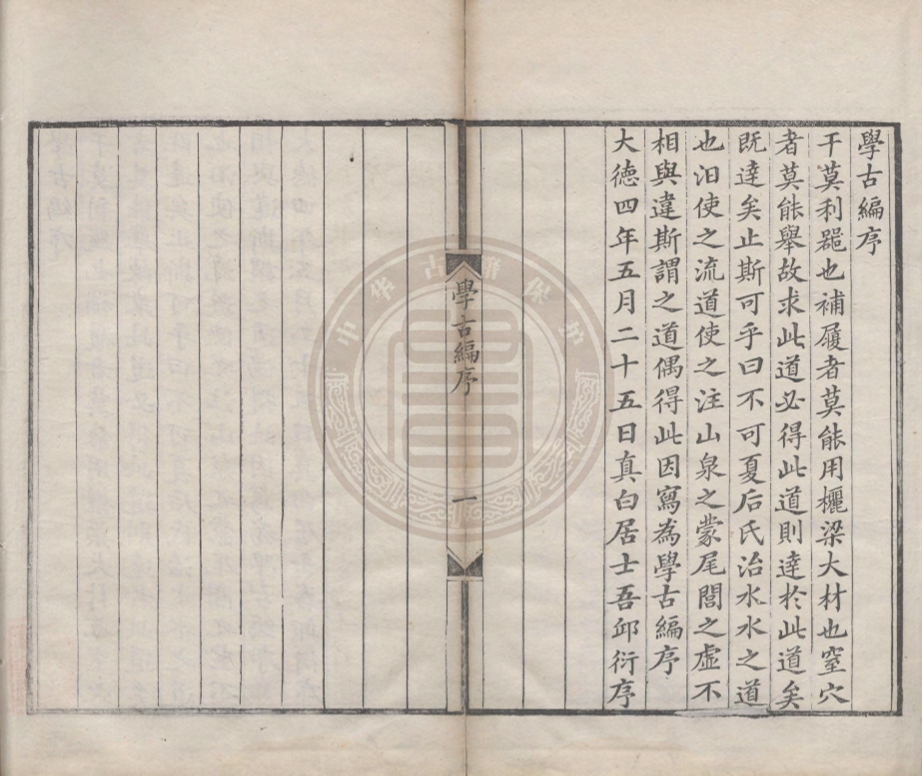 學古編序
干莫利器也補履者莫能用欐梁大材也窒穴
者莫能舉故求此道必得此道則達於此道矣
既達矣止斯可乎曰不可夏后氏治水水之道
也汩使之流道使之注山泉之蒙尾閭之虛不
相與違斯謂之道偶得此因寫為學古編序
大德四年五月二十五日真白居士吾邱衍序
學古編序
一